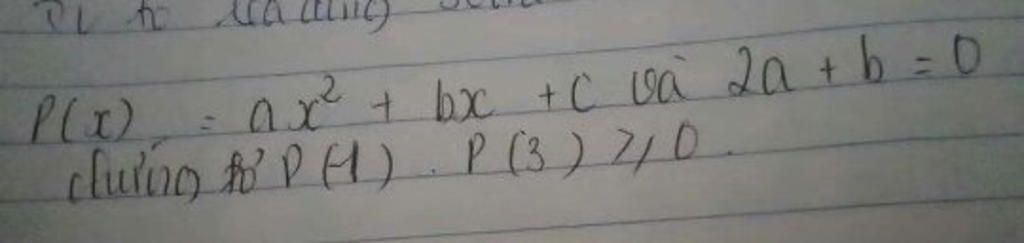 P(x) = ax² + bx + c và 2a + b = 0
chứng tỏ P(-1) . P(3) ≥ 0.